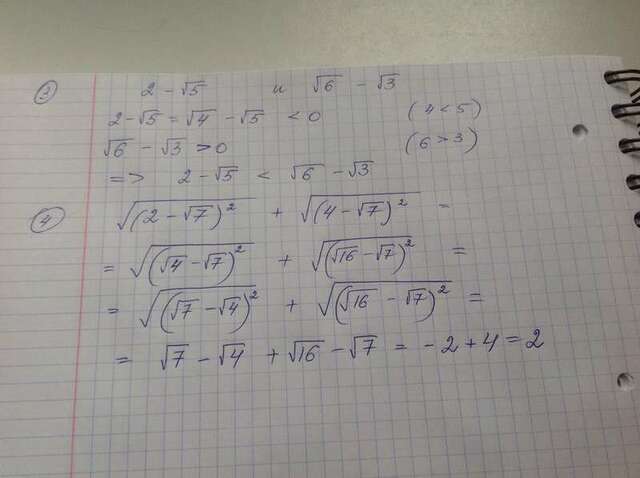 ② 2 - √5 и √6 - √3
2 - √5 = √4 - √5 < 0 (4 < 5)
√6 - √3 > 0 (6 > 3)
=> 2 - √5 < √6 - √3
④ √(2 - √7)² + √(4 - √7)² =
= √(√4 - √7)² + √(√16 - √7)² =
= √(√7 - √4)² + √(√16 - √7)² =
= √7 - √4 + √16 - √7 = -2 + 4 = 2